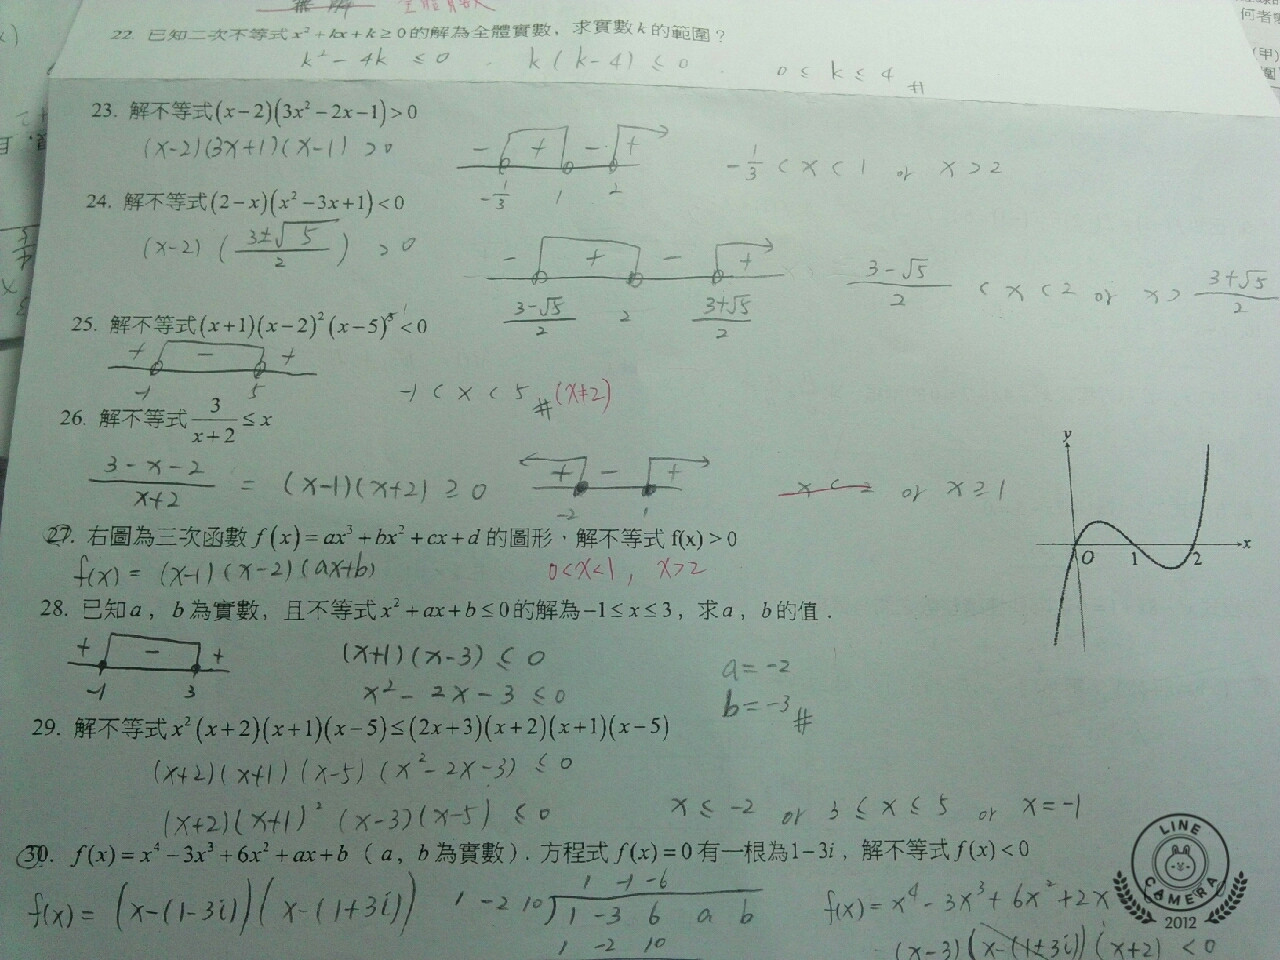 全體實數
22. 已知二次不等式x²+kx+k≥0的解為全體實數，求實數k的範圍？
k²-4k ≤0 . k(k-4)≤0 . 0≤k≤4 #
23. 解不等式(x-2)(3x²-2x-1)>0
(x-2)(3x+1)(x-1)>0
- + - +
-1/3 1 2
-1/3<x<1 or x>2
24. 解不等式(2-x)(x²-3x+1)<0
(x-2)(3±√5/2)>0
- + - +
3-√5/2 2 3+√5/2
3-√5/2 <x<2 or x> 3+√5/2
25. 解不等式(x+1)(x-2)²(x-5)⁵<0
+ - +
-1 5
-1<x<5 # (x≠2)
26. 解不等式3/x+2≤x
3-x-2/x+2 = (x-1)(x+2)≥0
+ - +
-2 1
x<-2 or x≥1
27. 右圖為三次函數f(x)=ax³+bx²+cx+d的圖形，解不等式f(x)>0
f(x)=(x-1)(x-2)(ax+b) 0<x<1, x>2
y
O 1 2 x
28. 已知a，b為實數，且不等式x²+ax+b≤0的解為-1≤x≤3，求a，b的值．
+ - +
-1 3
(x+1)(x-3)≤0
x²-2x-3≤0
a=-2
b=-3 #
29. 解不等式x²(x+2)(x+1)(x-5)≤(2x+3)(x+2)(x+1)(x-5)
(x+2)(x+1)(x-5)(x²-2x-3)≤0
(x+2)(x+1)²(x-3)(x-5)≤0 x≤-2 or 3≤x≤5 or x=-1
30. f(x)=x⁴-3x³+6x²+ax+b（a，b為實數）．方程式f(x)=0有一根為1-3i，解不等式f(x)<0
f(x)=(x-(1-3i))(x-(1+3i))
1 -1 -6
1 -2 10 1 -3 6 a b
1 -2 10
f(x)=x⁴-3x³+6x²+2x
(x-3)(x-(1±3i))(x+2)<0
LINE
CAMERA
2012
何者
(甲)